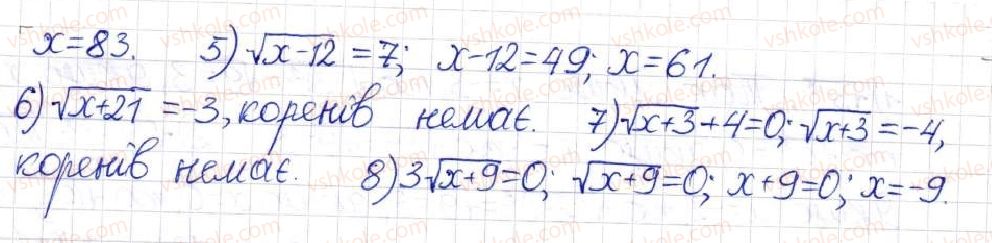 x=83. 5) √(x-12) = 7; x-12=49; x=61.
6) √(x+21) =-3, коренів немає. 7) √(x+3)+4=0; √(x+3)=-4,
коренів немає. 8) 3√(x+9)=0; √(x+9)=0; x+9=0; x=-9.